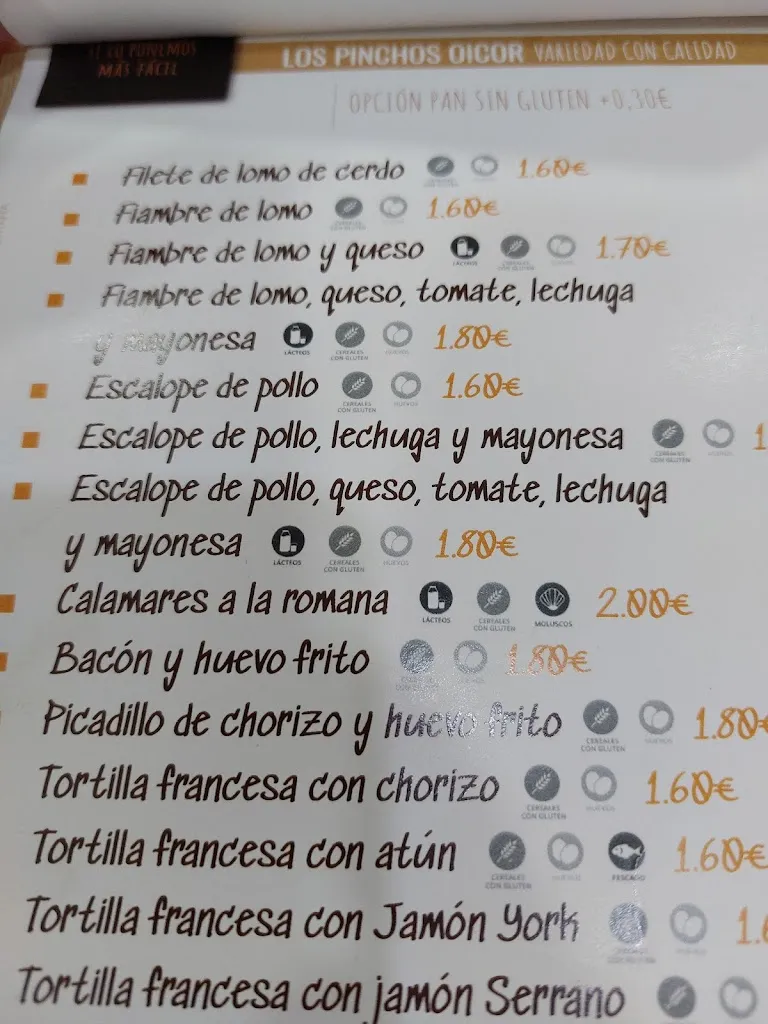 TE LO PONEMOS
MÁS FÁCIL
LOS PINCHOS OICOR VARIEDAD CON CALIDAD
OPCIÓN PAN SIN GLUTEN +0,30€
Filete de lomo de cerdo 1.60€
Fiambre de lomo 1.60€
Fiambre de lomo y queso LÁCTEOS CEREALES CON GLUTEN HUEVOS 1.70€
Fiambre de lomo, queso, tomate, lechuga
y mayonesa LÁCTEOS CEREALES CON GLUTEN HUEVOS 1.80€
Escalope de pollo CEREALES CON GLUTEN HUEVOS 1.60€
Escalope de pollo, lechuga y mayonesa CEREALES CON GLUTEN HUEVOS 1
Escalope de pollo, queso, tomate, lechuga
y mayonesa LÁCTEOS CEREALES CON GLUTEN HUEVOS 1.80€
Calamares a la romana LÁCTEOS CEREALES CON GLUTEN MOLUSCOS 2.00€
Bacón y huevo frito 1.80€
Picadillo de chorizo y huevo frito CEREALES CON GLUTEN HUEVOS 1.80€
Tortilla francesa con chorizo CEREALES CON GLUTEN HUEVOS 1.60€
Tortilla francesa con atún CEREALES CON GLUTEN HUEVOS PESCADO 1.60€
Tortilla francesa con Jamón York 1.6
Tortilla francesa con jamón Serrano